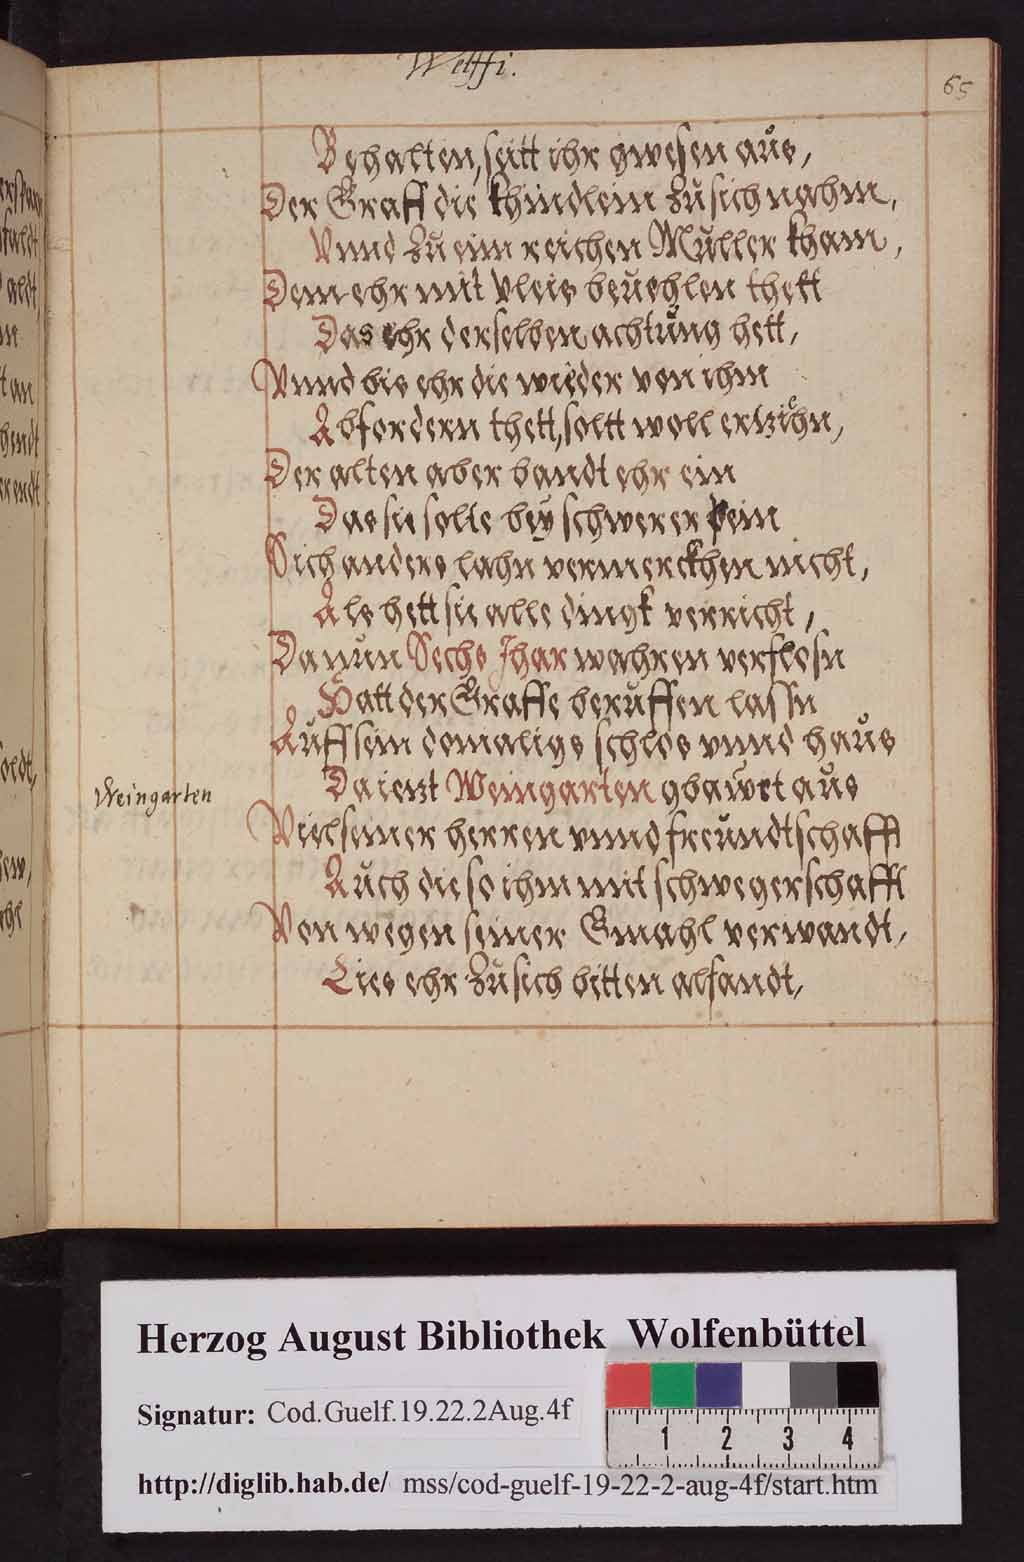 Welffi.
65
Behalten, seitt ihr gwesen aus,
Der Graff die khindlein zu sich nahm,
Vnnd zu eim reichen Müller kham,
Dem ehr mit vleis beuehlen thett
Das ehr derselben achtung hett,
Vnnd bis ehr die wieder von ihm
Abfordern thett, soltt woll ertziehn,
Der alten aber bandt ehr ein
Das sie solte bey schwerer pein
Sich anders lahn vermerckhen nicht,
Als hett sie alle dingk verricht,
Da nun Sechs Jhar wahren verflosn
Hatt der Graffe beruffen lassn
Auff sein domaligs schlos vnnd haus
Weingarten
Da ietzt Weingarten gbawet aus
Viel seiner herren vnnd freundtschafft
Auch die so ihm mit schwegerschafft
Von wegen seiner Gmahl verwandt,
Lies ehr zu sich bitten alsandt,
erspar
aldt,
m
t an
hendt
erendt
oldt,
ew,
Herzog August Bibliothek Wolfenbüttel
Signatur: Cod.Guelf.19.22.2Aug.4f
1 2 3 4
http://diglib.hab.de/ mss/cod-guelf-19-22-2-aug-4f/start.htm